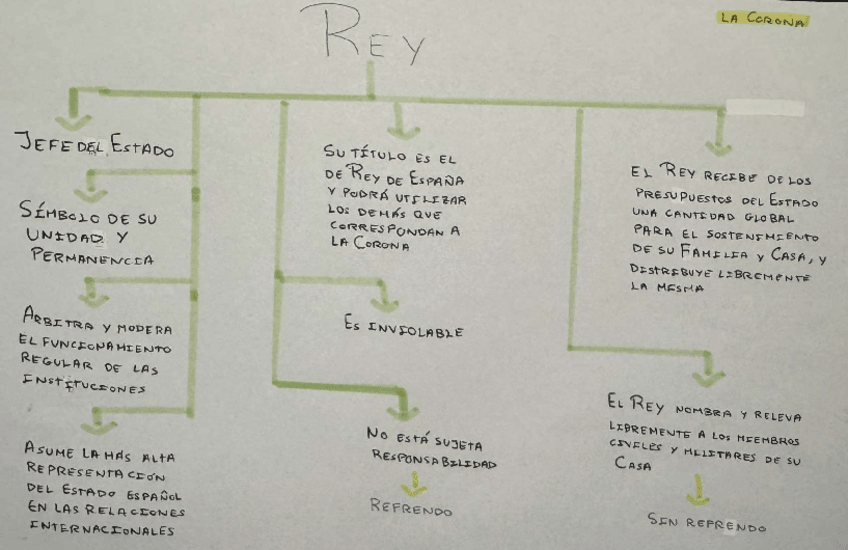 LA CORONA
REY
JEFE DEL ESTADO
SÍMBOLO DE SU
UNIDAD Y
PERMANENCIA
ARBITRA Y MODERA
EL FUNCIONAMIENTO
REGULAR DE LAS
INSTITUCIONES
ASUME LA MÁS ALTA
REPRESENTACIÓN
DEL ESTADO ESPAÑOL
EN LAS RELACIONES
INTERNACIONALES
SU TÍTULO ES EL
DE REY DE ESPAÑA
Y PODRÁ UTILIZAR
LOS DEMÁS QUE
CORRESPONDAN A
LA CORONA
ES INVIOLABLE
NO ESTÁ SUJETA
RESPONSABILIDAD
REFRENDO
EL REY RECIBE DE LOS
PRESUPUESTOS DEL ESTADO
UNA CANTIDAD GLOBAL
PARA EL SOSTENIMIENTO
DE SU FAMILIA Y CASA, Y
DISTRIBUYE LIBREMENTE
LA MISMA
EL REY NOMBRA Y RELEVA
LIBREMENTE A LOS MIEMBROS
CIVILES Y MILITARES DE SU
CASA
SIN REFRENDO